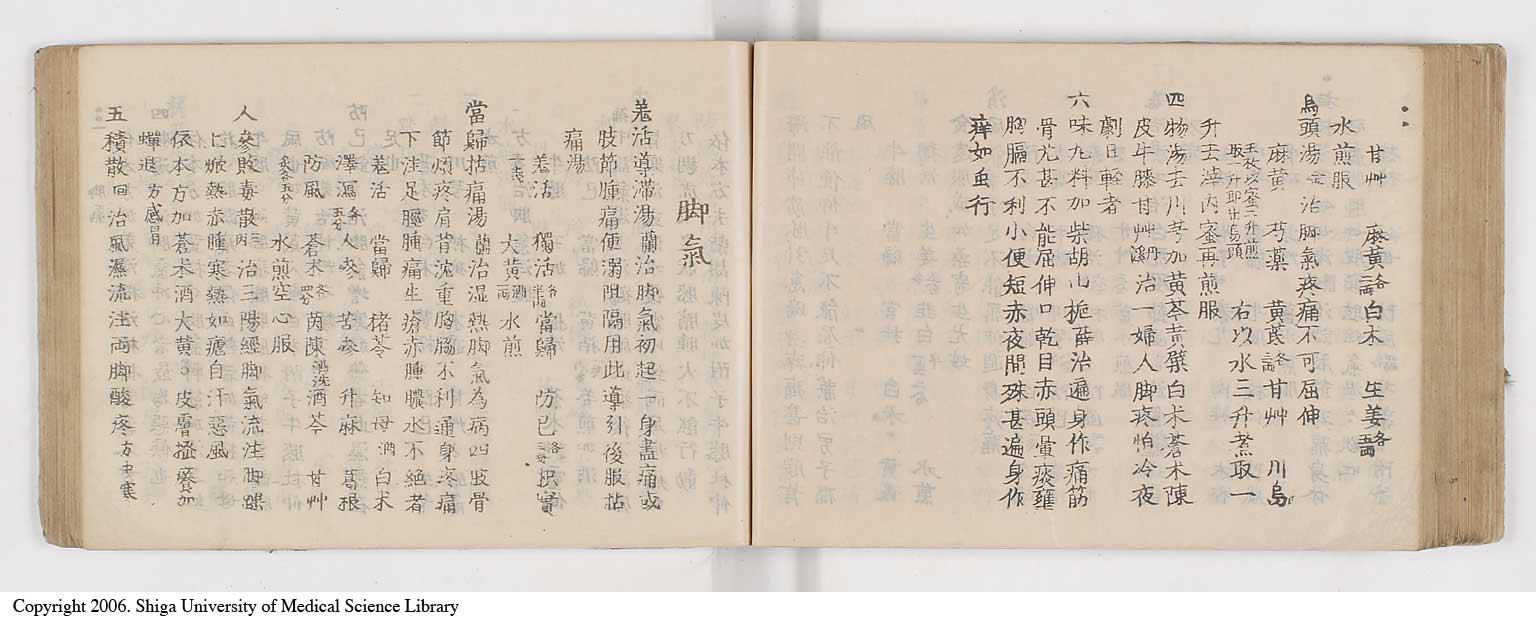 甘艸 麻黄 各 白朮 生姜 各
水煎服
烏頭湯 治脚氣疼痛不可屈伸
麻黄 芍薬 黄芪 各 甘艸 川烏
五枚㕮咀蜜二升煎取一升即出烏頭 右以水三升煮取一
升去滓内蜜再煎服
四物湯去川芎加黄芩黄蘗白朮蒼朮陳
皮牛膝甘艸 治一婦人脚疼怕冷夜
劇日輕者
六味丸料加柴胡山梔 治遍身作痛筋
骨尤甚不能屈伸口乾目赤頭暈痰壅
胸膈不利小便短赤夜間殊甚遍身作
痒如虫行
脚氣
羗活導滞湯 蘭 治脚氣初起一身盡痛或
肢節腫痛便溺阻隔用此導引後服拈
痛湯
羗活 獨活 各半兩 當歸 防已 各三分 枳實
五分 大黄 酒一兩 水煎
當歸拈痛湯 蘭 治湿熱脚氣為病四肢骨
節煩疼肩背沈重胸脇不利遍身疼痛
下注足脛腫痛生瘡赤腫膿水不絶者
羗活 當歸 猪苓 知母 酒 白朮
澤瀉 各五分 人參 苦參 升麻 葛根
防風 蒼朮 各四分 茵陳 酒洗 酒芩 甘艸
炙各五分 水煎空心服
人參敗毒散 治三陽經脚氣流注脚踝
上焮熱赤腫寒熱如瘧自汗惡風
依本方加蒼朮酒大黄 皮膚掻癢加
蟬退 方感冒
五積散 治風濕流注両脚酸疼 方中寒
Copyright 2006. Shiga University of Medical Science Library